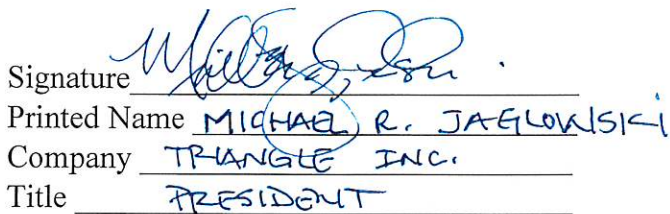 Signature
Printed Name MICHAEL R. JAGLOWSKI
Company TRIANGLE INC.
Title PRESIDENT